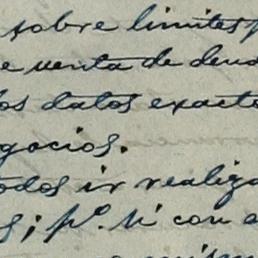 sobre limites p
e venta de deud
los datos exacto
gocios.
odos ir realiza
s; pº. si con a